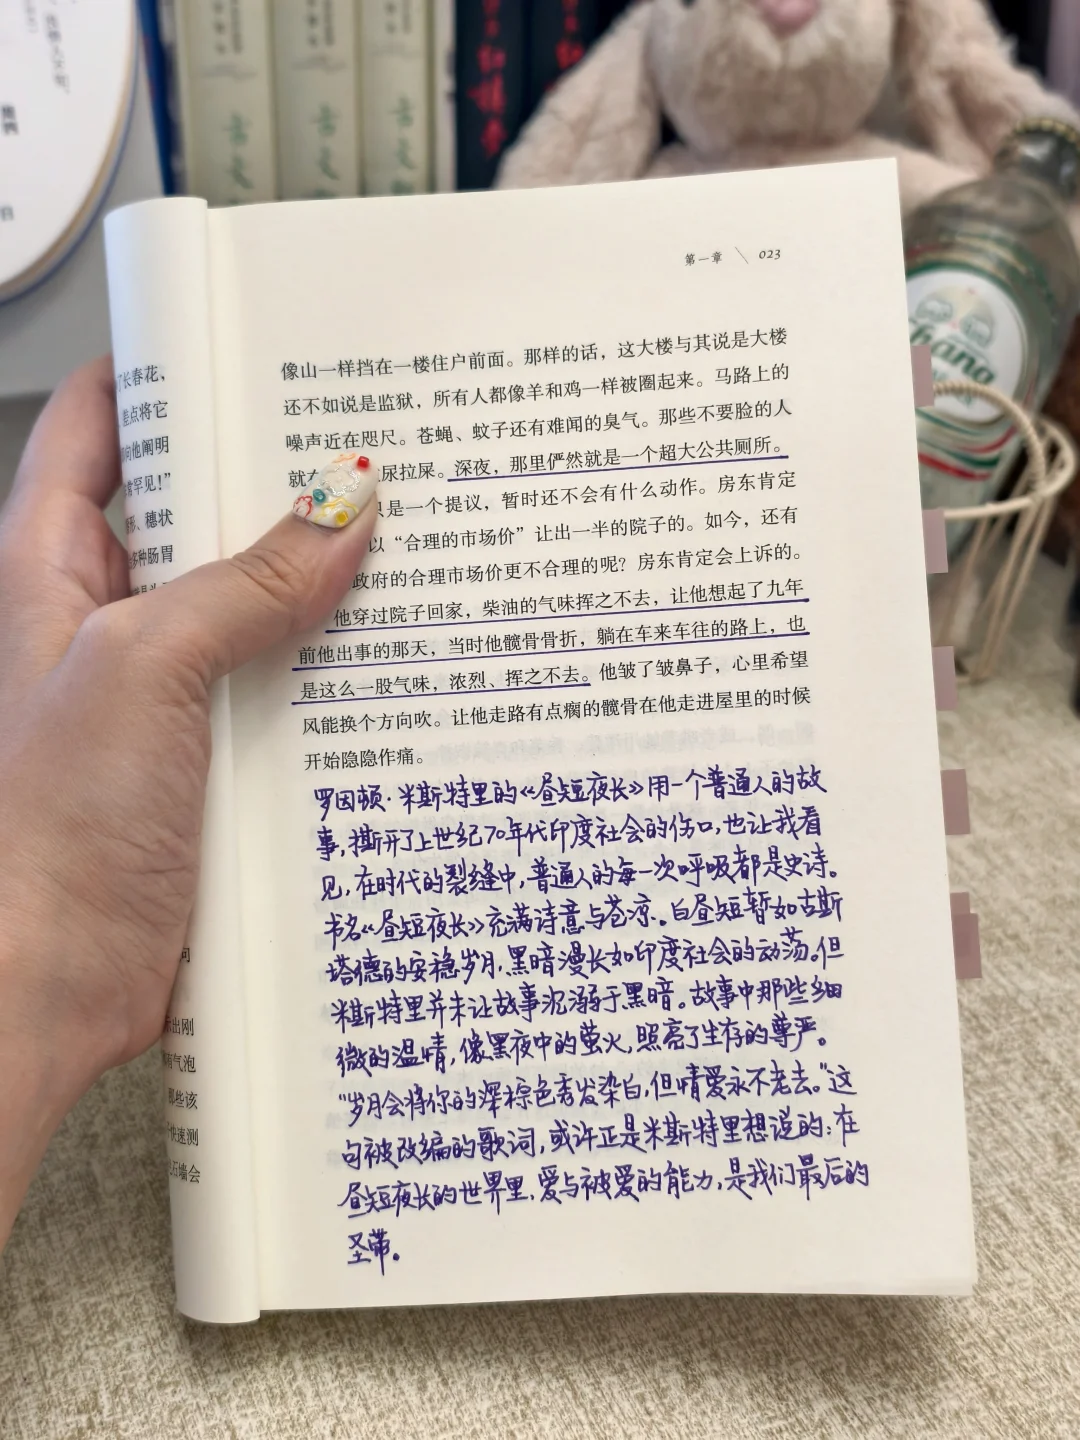 第一章 \ 023
像山一样挡在一楼住户前面。那样的话，这大楼与其说是大楼
还不如说是监狱，所有人都像羊和鸡一样被圈起来。马路上的
噪声近在咫尺。苍蝇、蚊子还有难闻的臭气。那些不要脸的人
就在 尿拉屎。深夜，那里俨然就是一个超大公共厕所。
只是一个提议，暂时还不会有什么动作。房东肯定
以“合理的市场价”让出一半的院子的。如今，还有
政府的合理市场价更不合理的呢？房东肯定会上诉的。
他穿过院子回家，柴油的气味挥之不去，让他想起了九年
前他出事的那天，当时他髋骨骨折，躺在车来车往的路上，也
是这么一股气味，浓烈、挥之不去。他皱了皱鼻子，心里希望
风能换个方向吹。让他走路有点瘸的髋骨在他走进屋里的时候
开始隐隐作痛。
罗因顿·米斯特里的《昼短夜长》用一个普通人的故
事，撕开了上世纪70年代印度社会的伤口，也让我看
见，在时代的裂缝中，普通人的每一次呼吸都是史诗。
书名《昼短夜长》充满诗意与苍凉。白昼短暂如古斯
塔德的安稳岁月，黑暗漫长如印度社会的动荡。但
米斯特里并未让故事沉溺于黑暗。故事中那些细
微的温情，像黑夜中的萤火，照亮了生存的尊严。
“岁月会将你的深棕色秀发染白，但情爱永不老去。”这
句被改编的歌词，或许正是米斯特里想说的：在
昼短夜长的世界里，爱与被爱的能力，是我们最后的
圣带。
了长春花，
差点将它
向他阐明
常罕见！”
形、穗状
多种肠胃
示出刚
有气泡
那些该
快速测
石墙会
chang